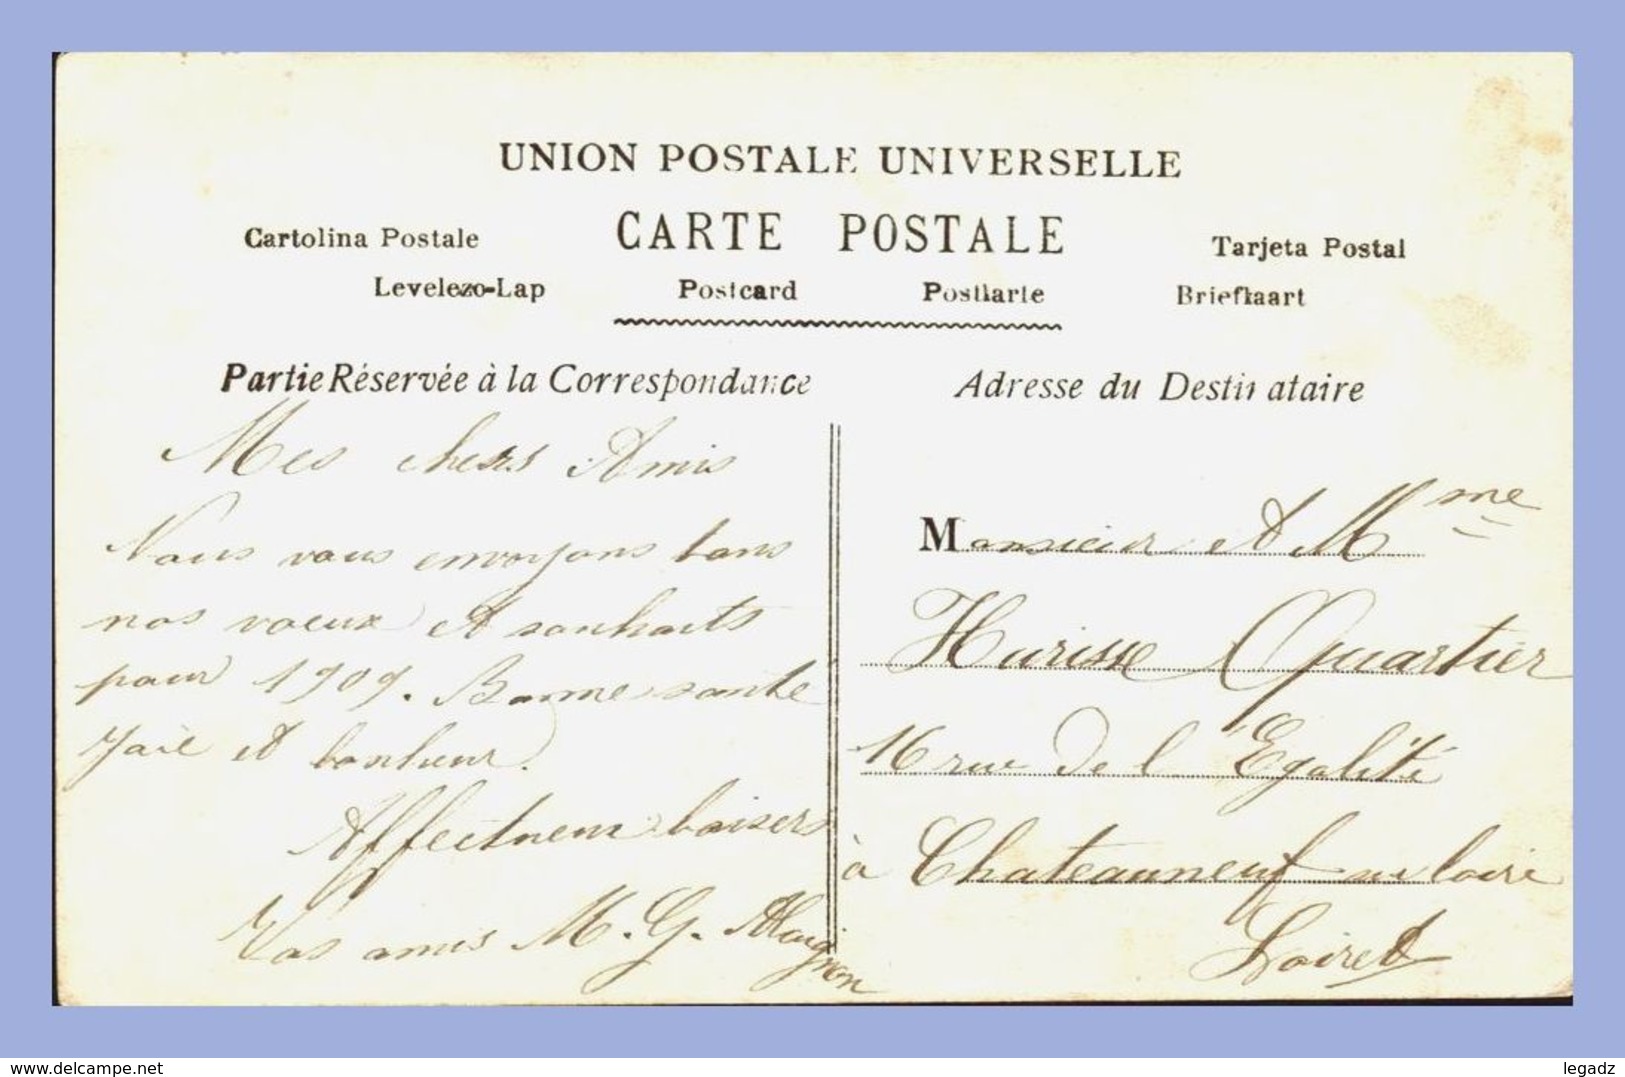 UNION POSTALE UNIVERSELLE
CARTE POSTALE
Cartolina Postale
Tarjeta Postal
Levelezo-Lap
Postcard
Postkarte
Briefkaart
Partie Réservée à la Correspondance
Adresse du Destinataire
Mes chers Amis
Nous vous envoyons tous
nos voeux et souhaits
pour 1909. Bonne santé
joie et bonheur.
Affectueux baisers
Vos amis M. G. Maignen
Monsieur et Mme
Hurisse Quartier
16 rue de l'Egalité
à Chateauneuf sur loire
Loiret
www.delcampe.net
legadz